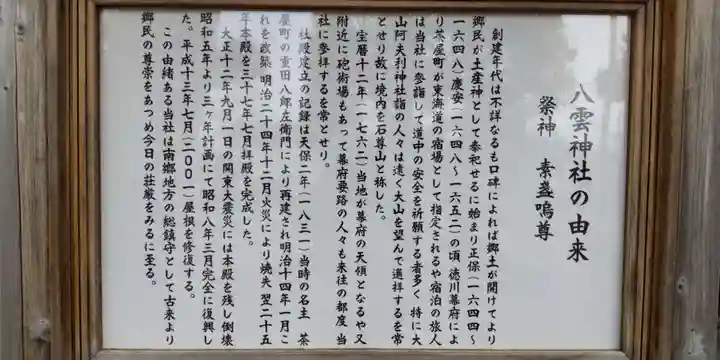 八雲神社の由来
祭神　素盞嗚尊
創建年代は不詳なるも口碑によれば郷土が開けてより
郷民が土産神として奉祀せるに始まり正保(一六四四〜
一六四八)慶安(一六四八〜一六五二)の頃 徳川幕府によ
り茶屋町が東海道の宿場として指定されるや宿泊の旅人
は当社に参詣して道中の安全を祈願する者多く 特に大
山阿夫利神社詣の人々は遠く大山を望んで遥拝するを常
とせり故に境内を石尊山と称した。
宝暦十二年(一七六二)当地が幕府の天領となるや又
附近に砲術場もあって幕府要路の人々も来往の都度 当
社に参拝するを常とせり。
社殿建立の記録は天保二年(一八三一)当時の名主　茶
屋町の重田八郎左衛門により再建され明治十四年一月こ
れを改築 明治二十四年十二月火災により焼失 翌二十五
年本殿を三十七年七月拝殿を完成した。
大正十二年九月一日の関東大震災には本殿を残し倒壊
昭和五年より三ヶ年計画にて昭和八年三月完全に復興し
た。平成十三年七月(二00一)屋根を修復する。
この由緒ある当社は南郷地方の総鎮守として古来より
郷民の尊崇をあつめ今日の荘厳をみるに至る。